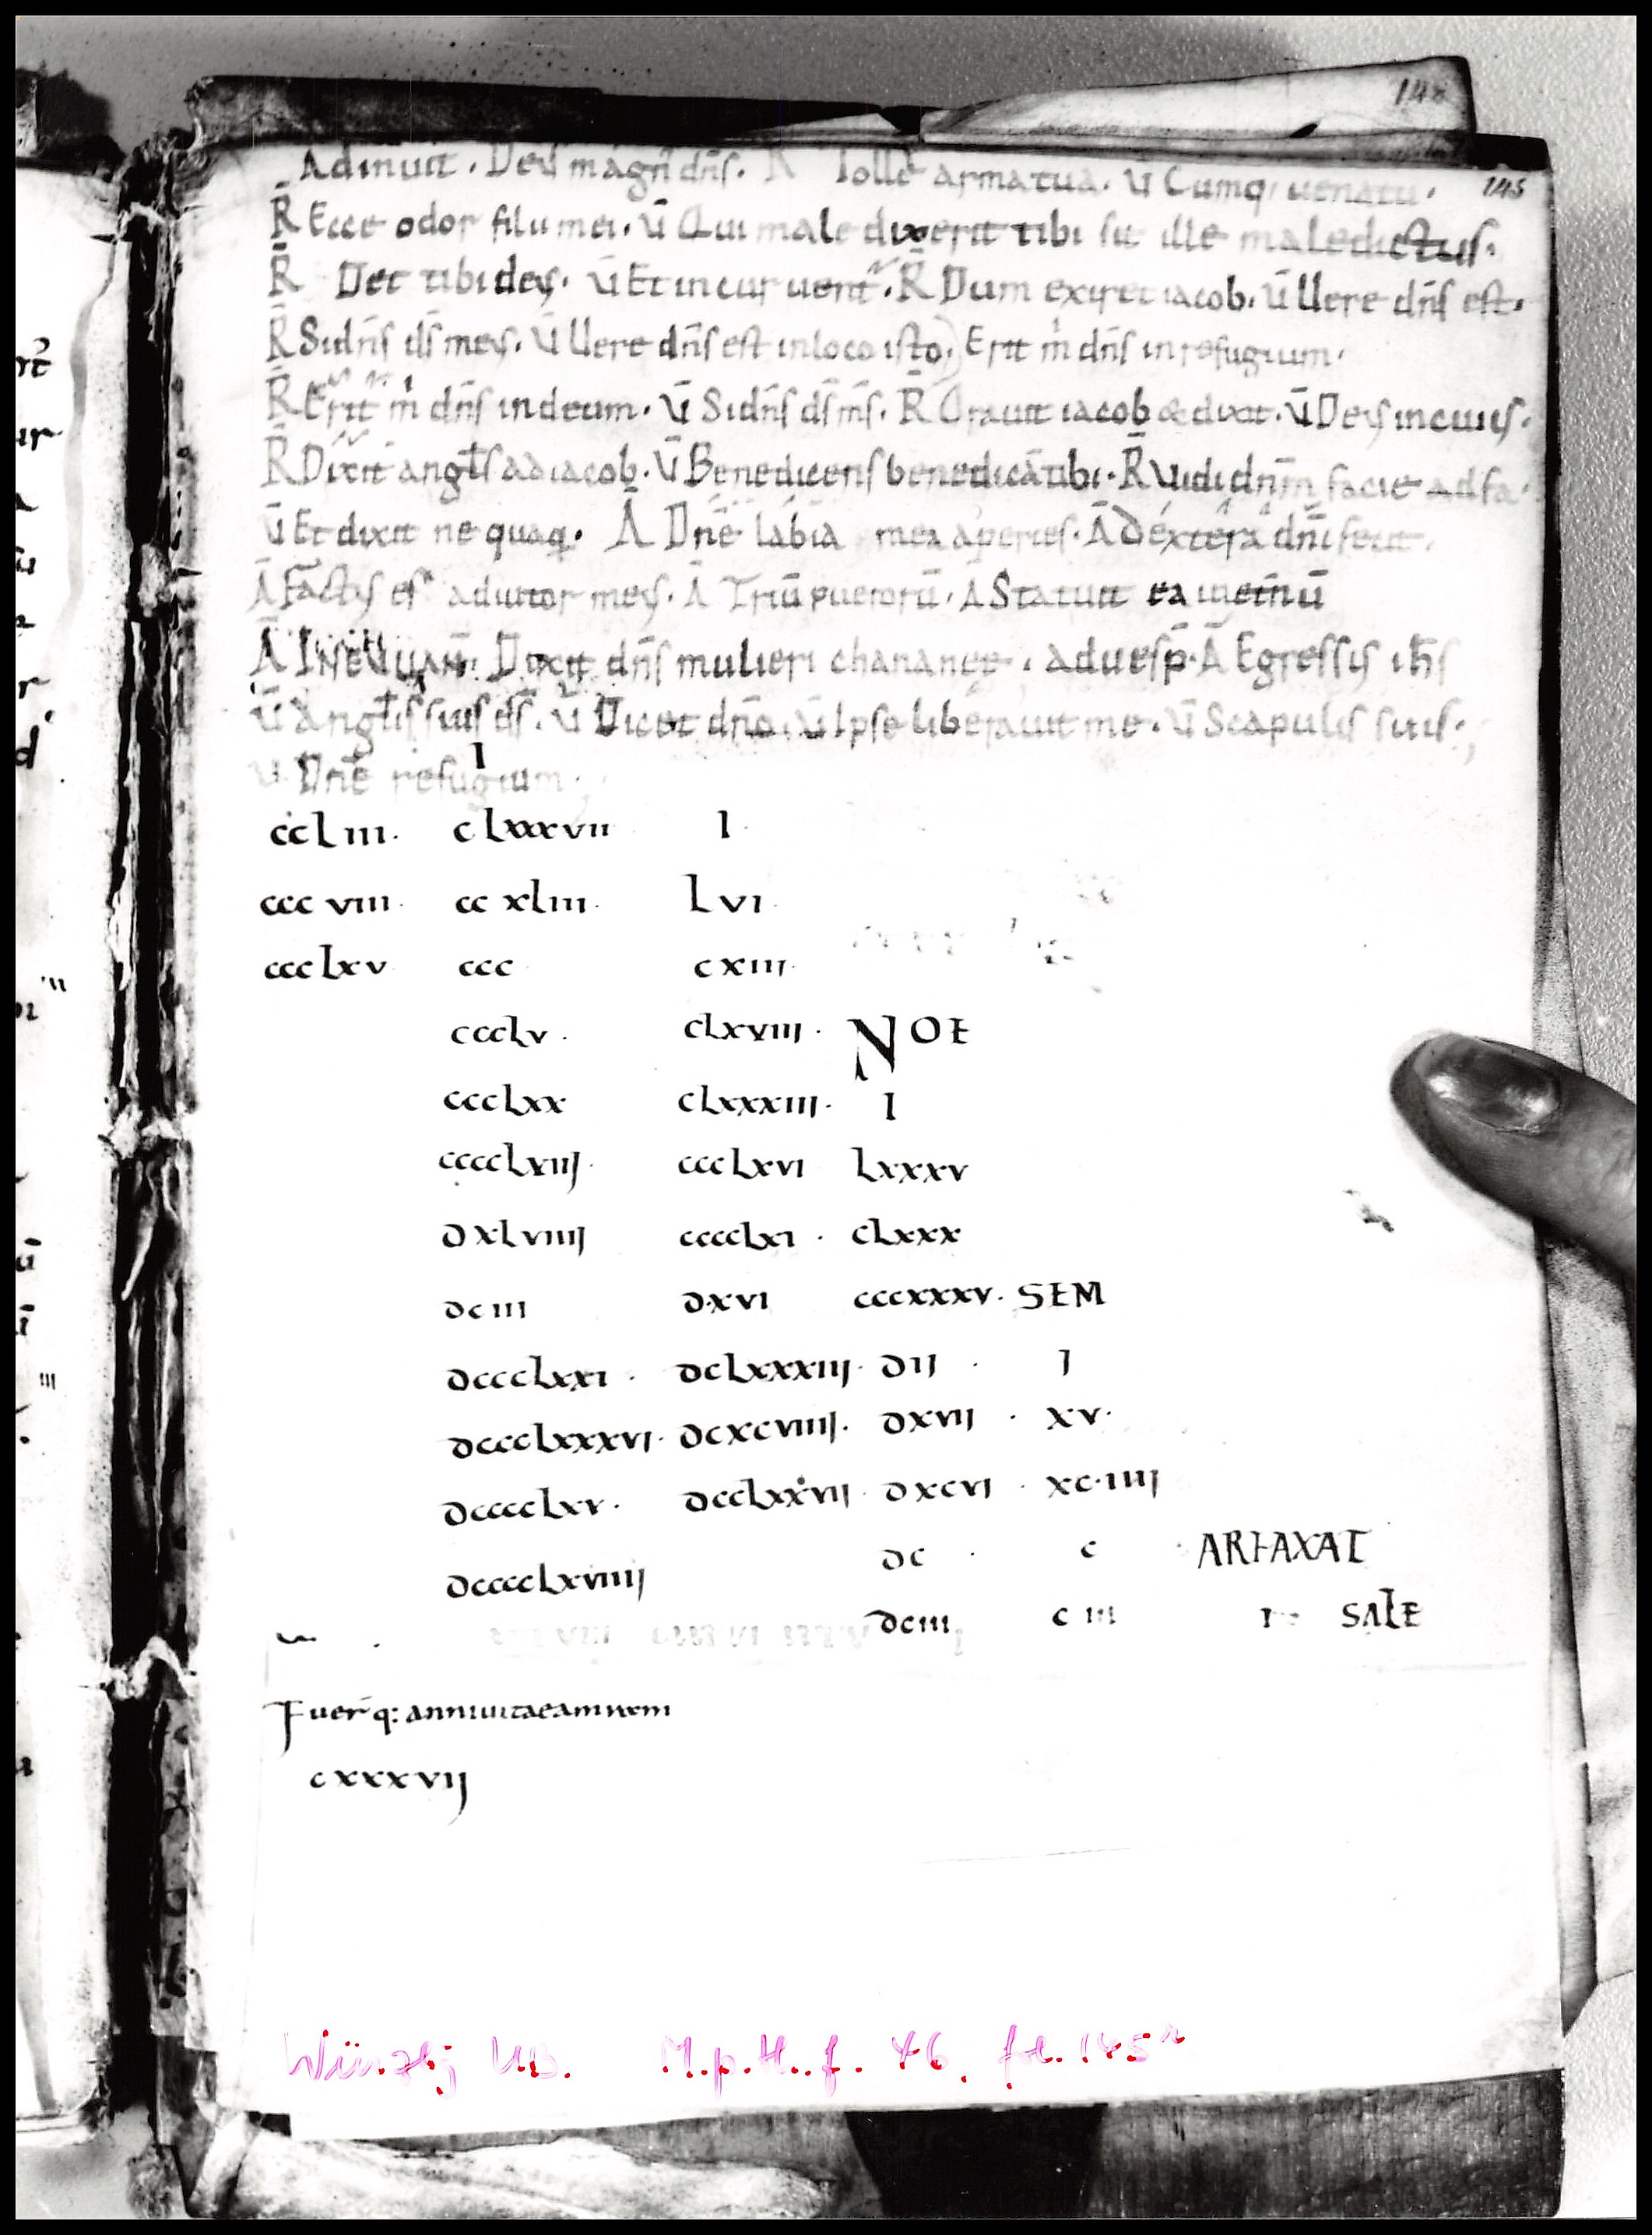 148
145
Adinuit. Deꝰ magn̄ dn̄s. R̄ Tolle arma tua. v̄ Cumq; uenatu.
R̄ Ecce odor filii mei. v̄ Qui maledixerit tibi sit ille maledictus.
R̄ Det tibi deꝰ. v̄ Et incuruent̄. R̄ Dum exiret iacob. v̄ Uere dn̄s est.
R̄ Si dn̄s d̄s meꝰ. v̄ Uere dn̄s est in loco isto. Erit m̄ dn̄s in refugium.
R̄ Erit m̄ dn̄s in deum. v̄ Si dn̄s d̄s m̄s. R̄ Orauit iacob & dixit. v̄ Deꝰ in cuiꝰ.
R̄ Dixit angl̄s ad iacob. v̄ Benedicens benedicā tibi. R̄ Uidi dn̄m facie ad fa.
v̄ Et dixit ne quaq̄. Ā Dn̄e labia mea aperies. Ā Dextera dn̄i fecit.
Ā Factꝰ es adiutor meꝰ. Ā Triū puerorū. Ā Statuit ea in et̄n̄ū
Ā IN EVVAN̄. Dixit dn̄s mulieri chananeę. ad uesp̄. Ā Egressꝰ ih̄s
v̄ Angl̄is suis d̄s. v̄ Dicet dn̄o. v̄ Ipse liberauit me. v̄ Scapulis suis.;
v̄ Dn̄e refugium.
I
ccliii. clxxxvii I
cccviii. ccxliii. Lvi
ccclxv ccc cxiii.
ccclv. clxviii. NOE
ccclxx clxxxiii. I
cccclxiij. ccclxvi lxxxv
dxlviiij cccclxi. clxxx
dciii dxvi cccxxxv. SEM
dccclxxi. dclxxxiij. dij. I
dccclxxxvi. dcxcviiij. dxvij. xv.
dcccclxv. dcclxxvij. dxcvi. xc.iiij
dcccclxviiij dc. c ARFAXAT
dciii ciii I SALE
Fuer̄ q: anni uitae amrem
cxxxvij
Würzbg UB. M.p.th.f. 46. fol. 145r